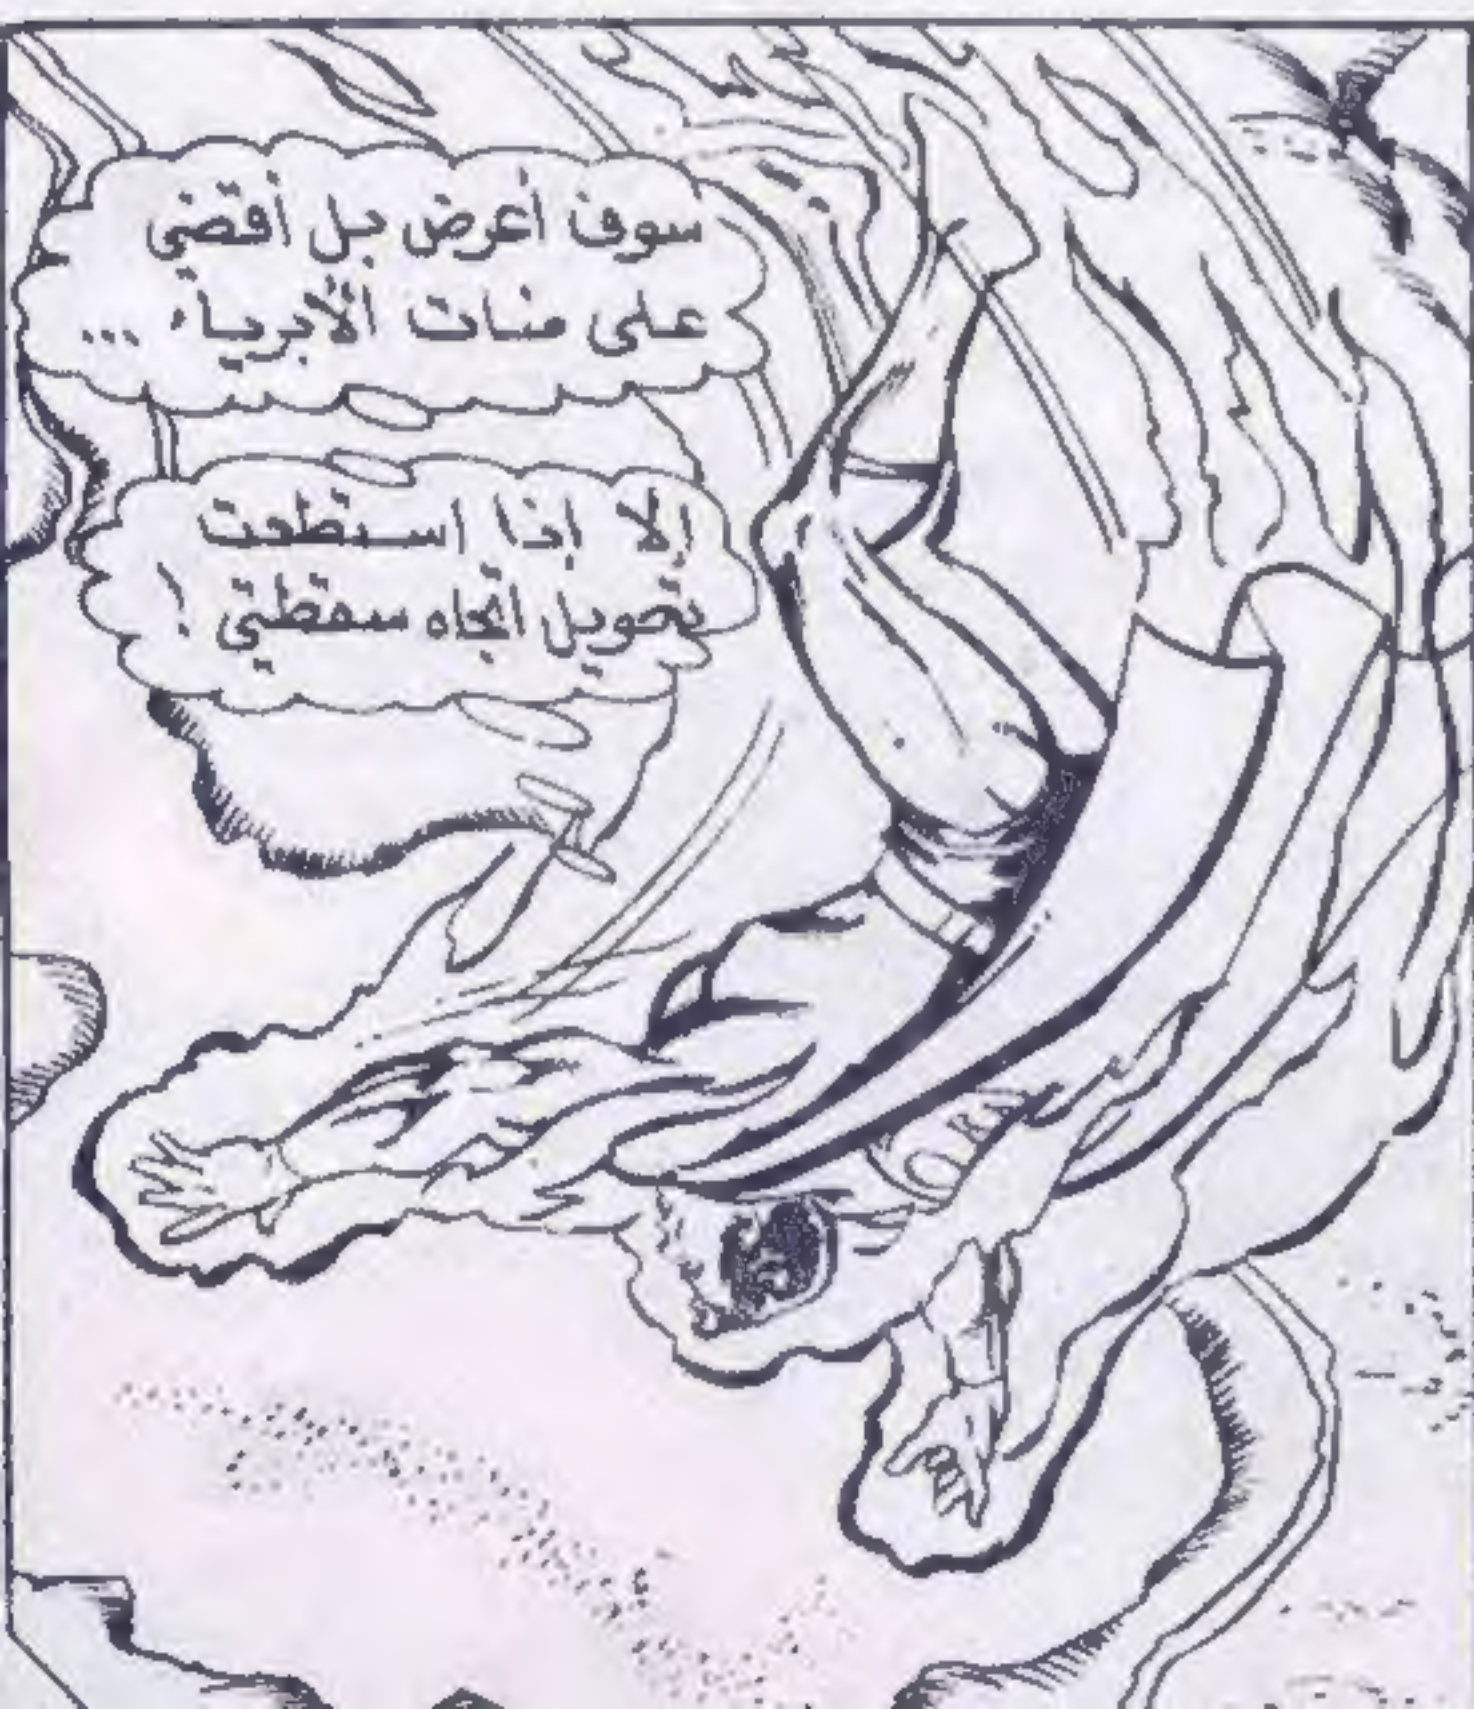 سوف أعرض بل أقضي
على مئات الأبرياء ...
إلا إذا استطعت
تحويل اتجاه سقطتي !